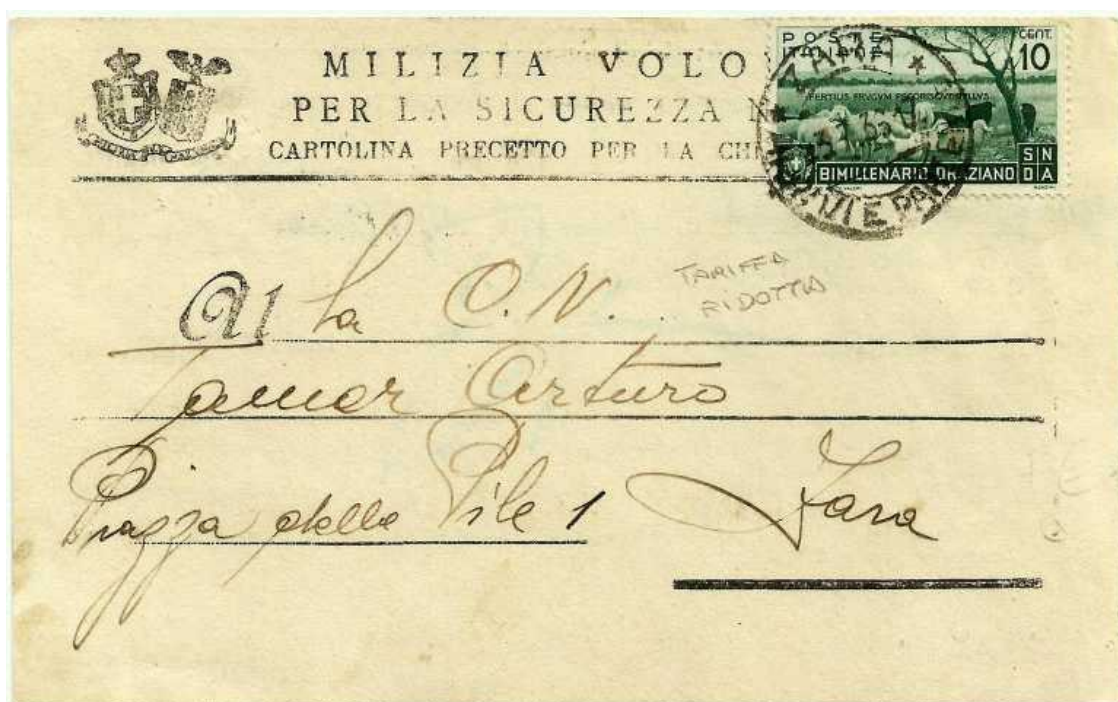 MILIZIA VOLO
PER LA SICUREZZA N
CARTOLINA PRECETTO PER LA CH
POSTE
ITALIANE
CENT.
10
BIMILLENARIO ORAZIANO
S N
D A
TARIFFA
RIDOTTA
Al la C. N.
Tamar Arturo
Piazza delle Pile 1 Zara